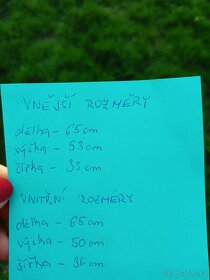 VNĚJŠÍ ROZMĚRY
délka - 65cm
výška - 53cm
šířka - 33cm
VNITŘNÍ ROZMĚRY
délka - 65cm
výška - 50cm
šířka - 30cm